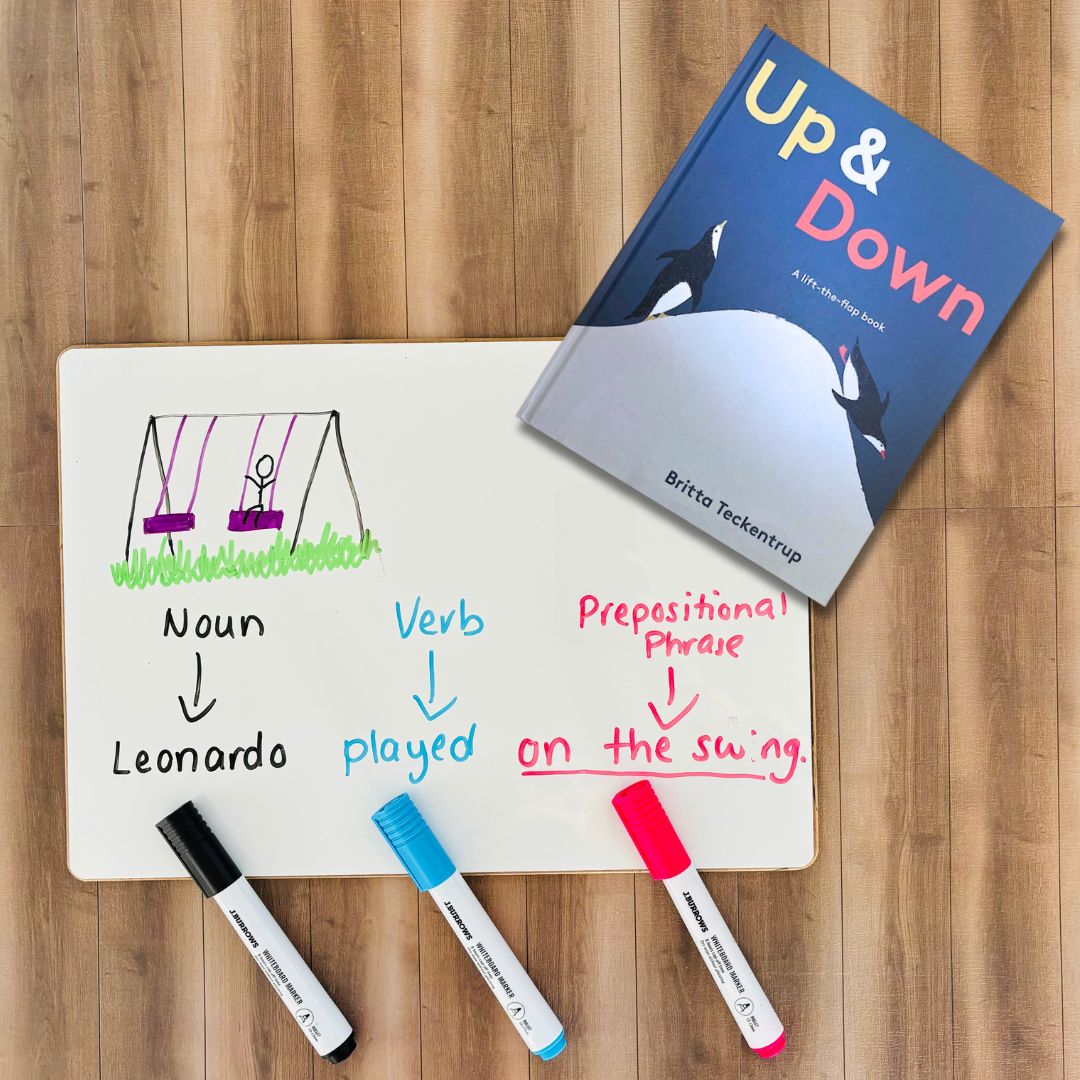 Up &
Down
A lift-the-flap book
Britta Teckentrup
Noun
Verb
Prepositional
Phrase
Leonardo
played
on the swing.
J.BURROWS
WHITEBOARD MARKER
J.BURROWS
WHITEBOARD MARKER
J.BURROWS
WHITEBOARD MARKER